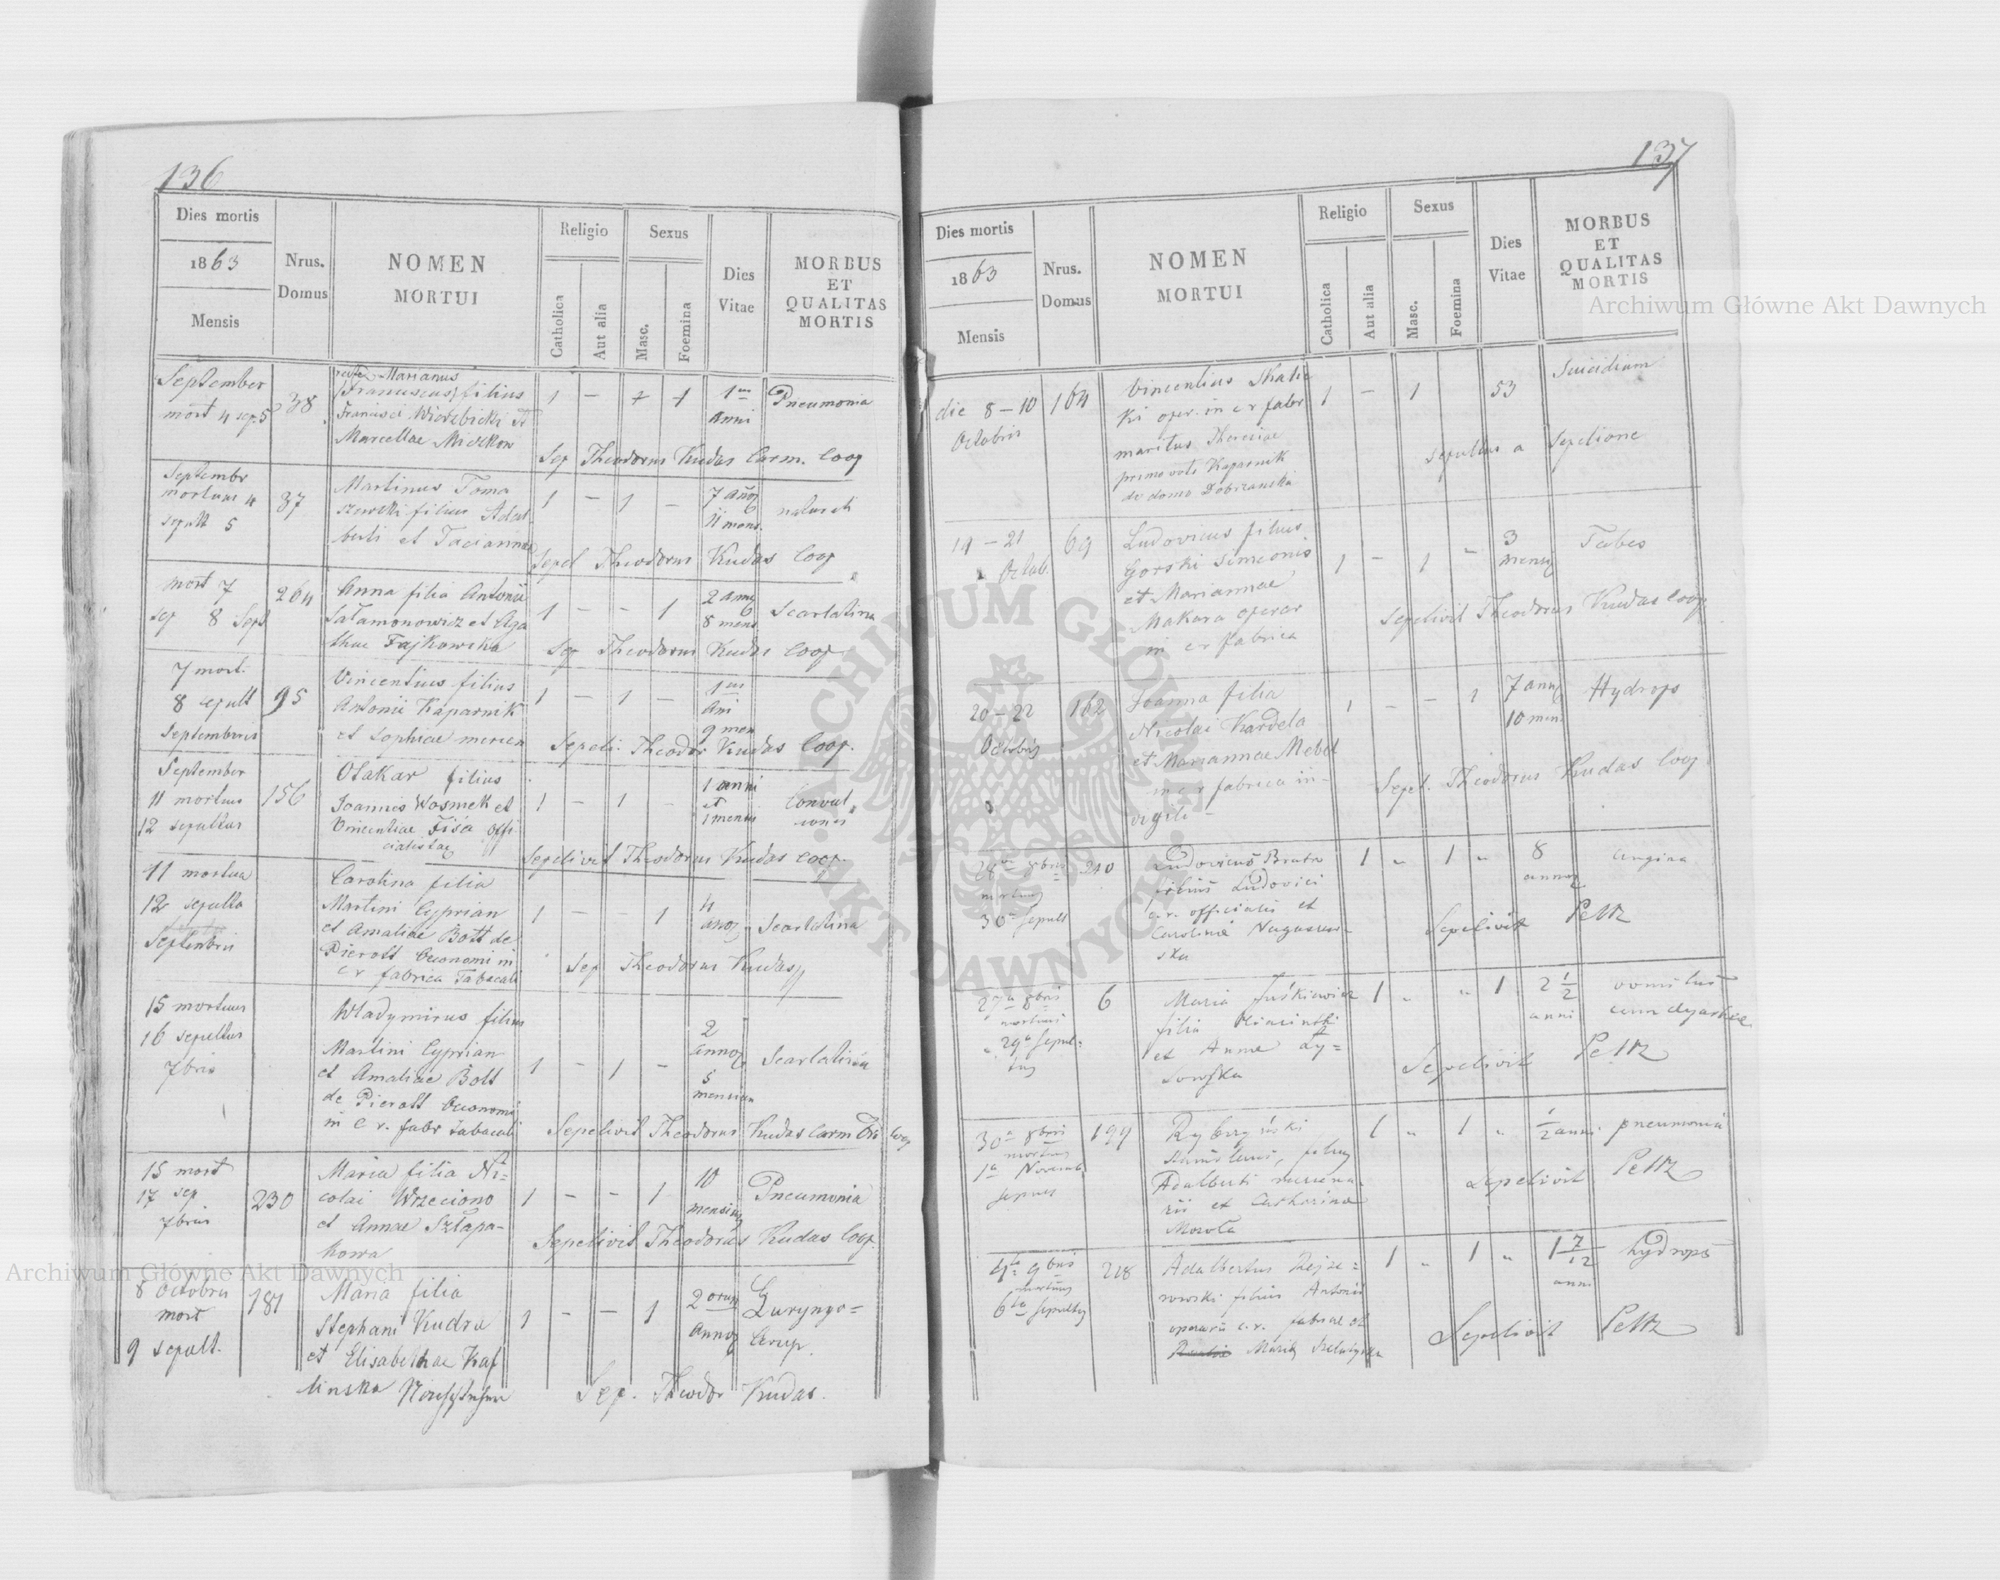 136
Dies mortis
1863
Mensis
Nrus.
Domus
NOMEN
MORTUI
Religio
Catholica
Aut alia
Sexus
Masc.
Foemina
Dies
Vitae
MORBUS
ET
QUALITAS
MORTIS
September
mort 4 sep. 5
38
Marianus
Franciscus filius
Francisci Wierzbicki et
Marcellae
1 — 1
1
anni
Pneumonia
Sep Theodorus Kudas Carm. Coop
Septembr
mortuus 4
sepult 5
37
Martinus Toma
szewski filius Adal
berti et
1 — 1 —
7
11 mens.
Sepel Theodorus Kudas Coop
mort 7
sep 8 Sept
264
Anna filia Antonii
Sałamonowicz et Aga
thae Fajkowska
1 — — 1
2
8 mens
Scarlatina
Sep Theodorus Kudas Coop
7 mort.
8 sepult
Septembris
95
Vincentius filius
Antonii Kaparnik
et Sophiae mercen
1 — 1 —
9 men
Sepeli. Theodor Kudas Coop.
September
11 mortuus
12 sepultus
156
Otakar filius
Joannis Wosmek et
Vincentiae Fiśa offi
cialistae
1 — 1 —
1 anni
et
1 mensis
Convul
siones
Sepelivit Theodorus Kudas Coop.
11 mortua
12 sepulta
Septembris
Carolina filia
Martini Cyprian
et Amaliae Bott de
Pierott Oeconomi in
c r fabrica Tabacali
1 — — 1
4
Scarlatina
Sep Theodorus Kudas
15 mortuus
16 sepultus
7bris
Wladymirus filius
Martini Cyprian
et Amaliae Bott
de Pierott Oeconomi
in c r. fabr Tabacali
1 — 1 —
2
5
mensium
Scarlatina
Sepelivit Theodorus Kudas Carm Coop
15 mort
17 sep
7bris
230
Maria filia Ni=
colai Wrzeciono
et Annae Szłapa-
kowa
1 — — 1
10
mensium
Pneumonia
Sepelivit Theodorus Kudas Coop.
8 Octobris
mort
9 sepult.
181
Maria filia
Stephani Kudra
et Elisabethae Kaf
linska
1 — — 1
2
Sep. Theodor Kudas.
137
Dies mortis
1863
Mensis
Nrus.
Domus
NOMEN
MORTUI
Religio
Catholica
Aut alia
Sexus
Masc.
Foemina
Dies
Vitae
MORBUS
ET
QUALITAS
MORTIS
die 8 — 10
Octobris
164
Vincentius Skalic
ki oper. in c r fabr
maritus Theresiae
primo voti Kaparnik
de domo Dobrzanska
1 — 1
53
Suicidium
sepultus a
19 — 21
Octob.
69
Ludovicus filius
Gorski Simeonis
et Mariannae
Makara operar
in c r fabrica
1 — 1 —
3
mens
Tabes
Sepelivit Theodorus Kudas Coop
20 — 22
Octobris
162
Joanna filia
Nicolai Kardela
et Mariannae Mebel
in c r fabrica in-
vigili-
1 — — 1
7
10 men
Hydrops
Sepel. Theodorus Kudas Coop
28 8bris
mortuus
30 sepult
210
Ludovicus
filius Ludovici
c. r. officialis et
Carolina
1 " 1 "
8
annor
angina
Sepelivit Peltz
27 8bris
29 sepul=
tus
6
Maria
filia
et Anna
1 " " 1
2 1/2
anni
vomitus
Sepelivit Peltz
30 8bris
mortuus
1 Novemb
sepult
199
filius
Adalberti mercena
rii et Catharina
1 " 1 "
1/2 anni
pneumonia
Sepelivit Peltz
9bris
mortuus
6 sepultus
218
Adalbertus
filius Antonii
operarii c. r. fabricae et
1 " 1 "
1 7/12
anni
hydrops
Sepelivit Peltz
Archiwum Główne Akt Dawnych
Archiwum Główne Akt Dawnych
ARCHIWUM GŁÓWNE
AKT DAWNYCH